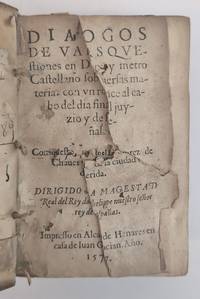 DIALOGOS
DE VARIAS QVE-
stiones en D y metro
Castellano sob ersas ma
terias con vn ce al ca
bo del dia final juy
zio y de se
ñal
Compuesto rez de
Chaues la ciudad
erida.
DIRIGIDO A MAGESTAD
Real del Rey do Felippe nuestro señor
rey de spañas.
Impresso en Alca de Henares en
casa de Iuan Gracian. Año.
157